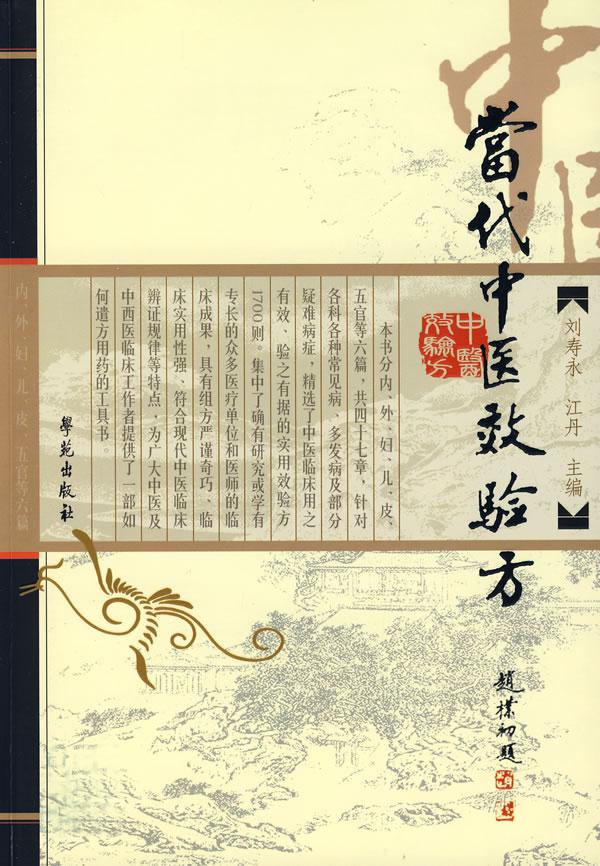 中医
當代中医效验方
刘寿永 江丹 主编
中醫
效驗方
本书分内、外、妇、儿、皮、
五官等六篇，共四十七章，针对
各科各种常见病、多发病及部分
疑难病症，精选了中医临床用之
有效、验之有据的实用效验方
1700则。集中了确有研究或学有
专长的众多医疗单位和医师的临
床成果，具有组方严谨奇巧、临
床实用性强、符合现代中医临床
辨证规律等特点，为广大中医及
中西医临床工作者提供了一部如
何遣方用药的工具书。
學苑出版社
内、外、妇、儿、皮、五官等六篇
趙樸初題